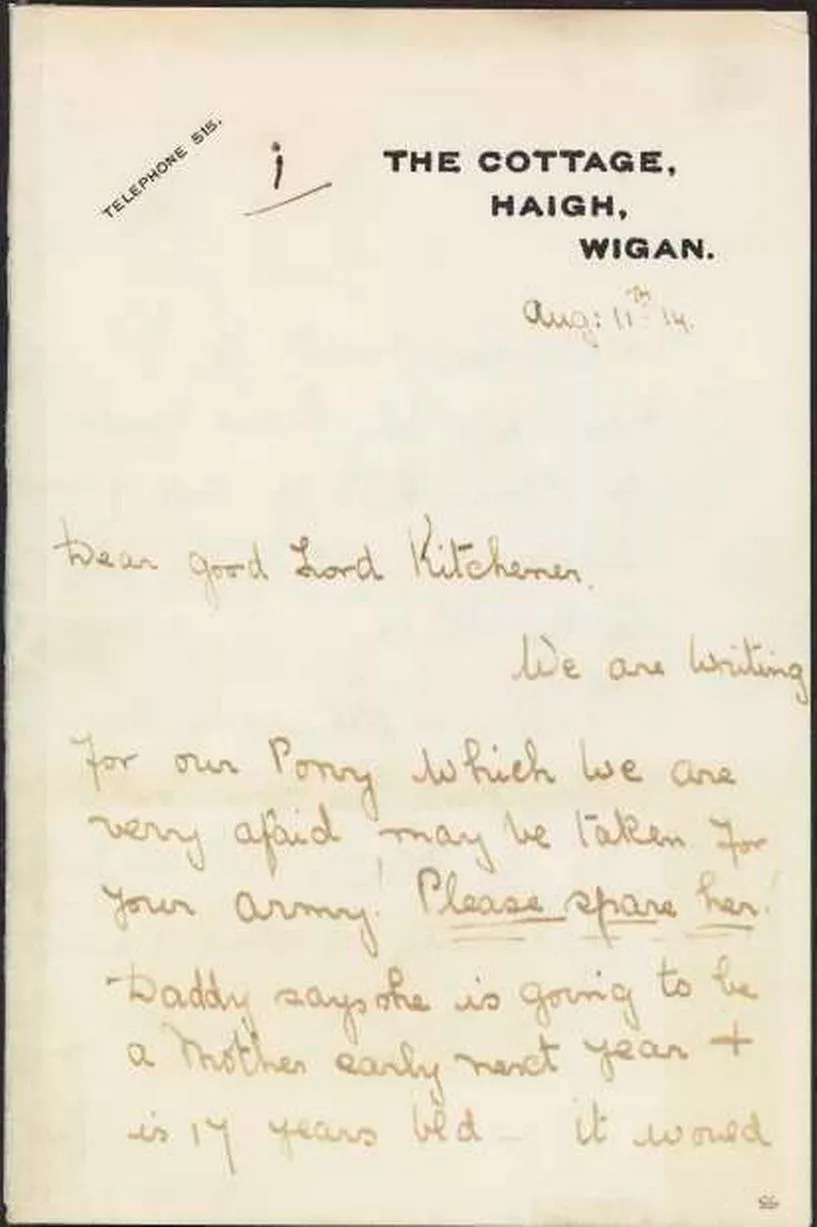 TELEPHONE 515.
i
THE COTTAGE,
HAIGH,
WIGAN.
Aug: 11TH 14.
Dear good Lord Kitchener.
We are writing
for our Pony which we are
very afaid may be taken for
your army! Please spare her!
Daddy says she is going to be
a Mother early next year +
is 17 years old - it would